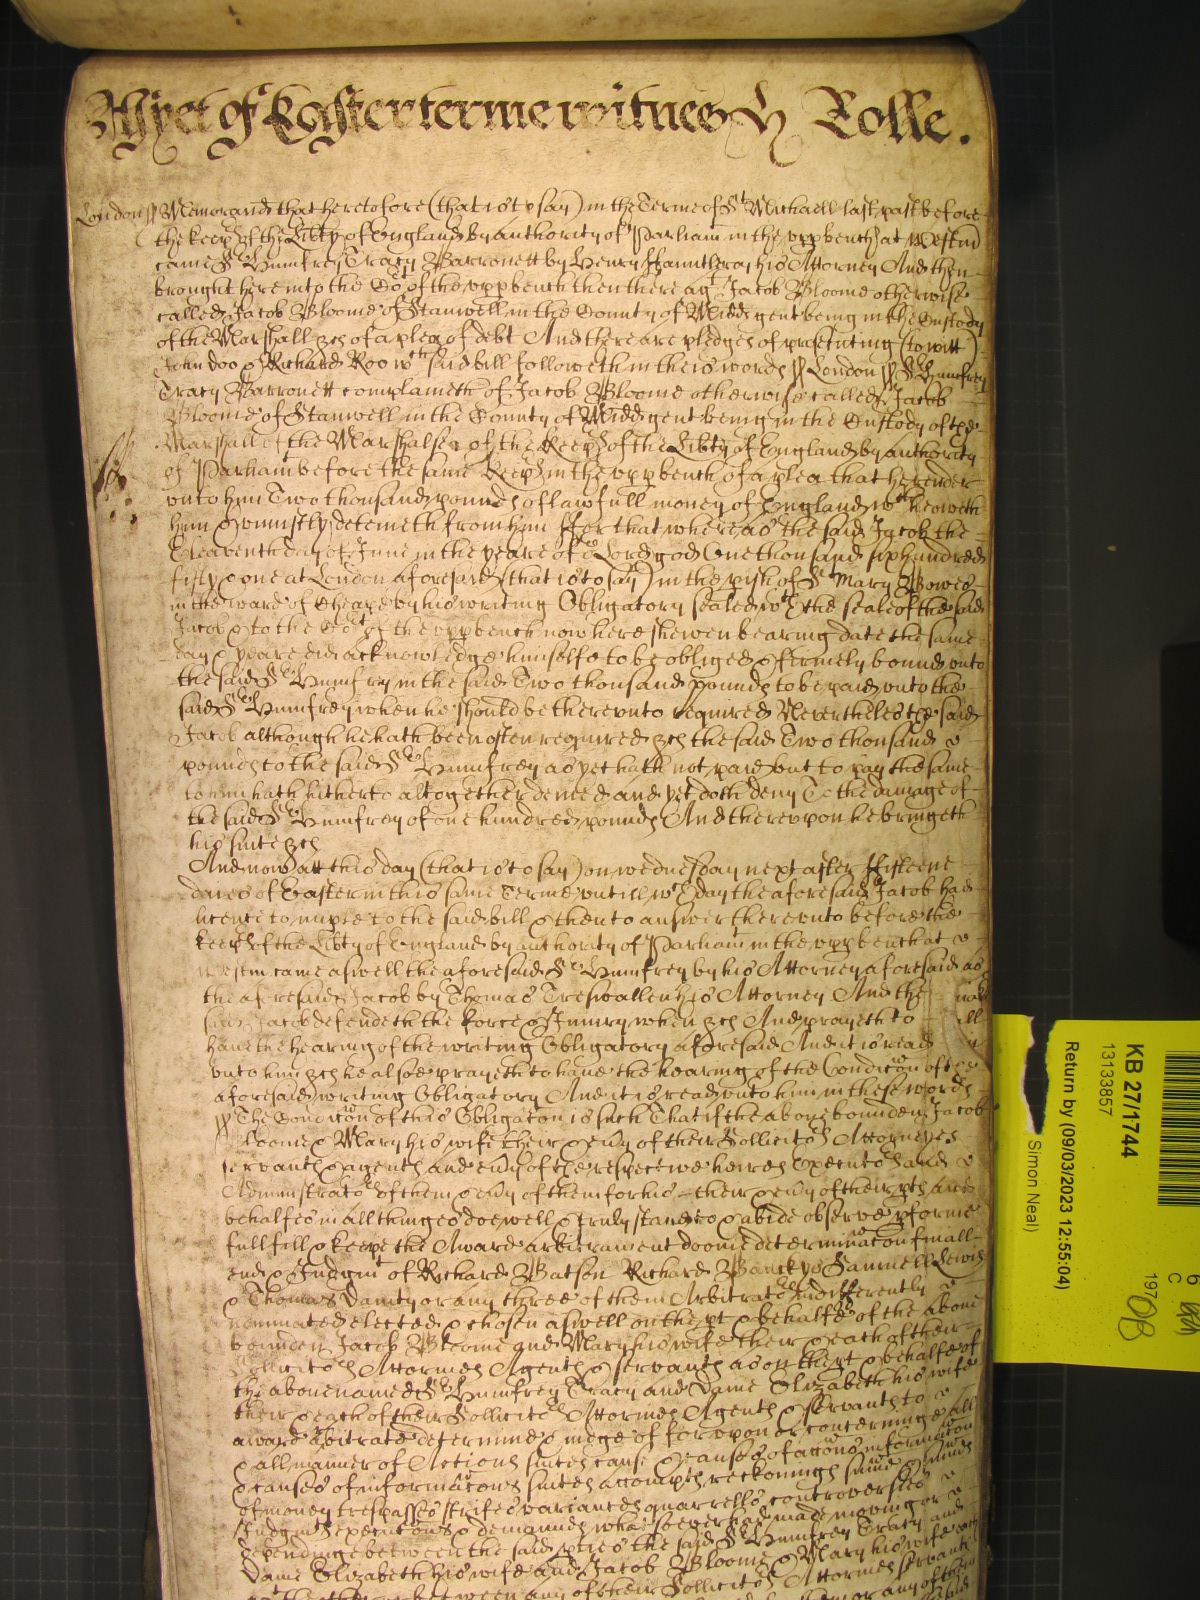 Yet of Easter terme witnes ye Rolle.
London ss Memorand that heretofore (that is to say) in the Terme of St Michaell last past before
the keeps of the Libty of England by authority of Parliam in the upp bench at Westm
came Sr Humfrey Tracy Barronett by Henry ffauntleroy his Attorney And then
brought here into the Cot of the upp bench then there agt Jacob Bloome otherwise
called Jacob Bloome of Stanwell in the County of Midd gent being in the Custody
of the Marshall &c of a plea of debt And there are pledges of prosecuting (to witt)
John Doo & Richard Roo wch said bill followeth in theis words ss London ss Sr Humfrey
Tracy Barronett complaineth of Jacob Bloome otherwise called Jacob
Bloome of Stanwell in the County of Midd gent being in the Custody of the
Marshall of the Marshalsea of the Keeps of the Libty of England by authority
of Parliamt before the same Keeps in the upp bench of a plea that he render
unto him Two thousand pounds of lawfull money of England wch he oweth
him & uniustly deteineth from him ffor that whereas the said Jacob the
Eleaventh day of June in the yeare of or Lord god One thousand six hundred
fifty & one at London aforesaid (that is to say) in the pish of St Mary Bowe
in the ward of Cheape by his writing Obligatory sealed wth the seale of the said
Jacob & to the Cot of the upp bench now here shewen bearing date the same
day & yeare did acknowledge himselfe to be obliged & firmely bound unto
the said Sr Humfrey in the said Two thousand pounds to be paid unto the
said Sr Humfrey when he should be thereunto required Neverthelesse the said
Jacob although he hath been often required &c the said Two thousand
pounds to the said Sr Humfrey as yet hath not paid but to pay the same
to him hath hitherto altogether denied and yet doth deny To the damage of
the said Sr Humfrey of one hundred pounds And thereupon he bringeth
his suite &c
And now att this day (that is to say) on wednesday next after ffifteene
daies of Easter in this same Terme untill wch day the aforesaid Jacob had
licence to imple to the said bill & then to answer thereunto before the
keeps of the Libty of England by authority of Parliam in the upp bench at
Westm came aswell the aforesaid Sr Humfrey by his Attorney aforesaid as
the aforesaid Jacob by Thomas Treswallen his Attorney And the
said Jacob defendeth the force & Iniury when &c And prayeth to
have the hearing of the writing Obligatory aforesaid And it is read
unto him &c he alsoe prayeth to have the hearing of the Condicon of the
aforesaid writing Obligatory And it is read unto him in these words
ss The Condicon of this Obligacon is such That if the above bounden Jacob
Bloome & Mary his wife their & evy of their Sollicitors Attorneyes
servants & agents and evy of the respective heires Executors and
Administrators of them & evy of them for his their & evy of their pts and
behalfes in all things doe well & truly stand to & abide observe pforme
fullfill & keepe the Award arbitrament doome determinacon finall
end & Judgmt of Richard Batson Richard Banckes Samuell Lewis
& Thomas Vanity or any three of them Arbitrators indifferently
nominated elected & chosen aswell on the pt & behalfe of the above
bounden Jacob Bloome and Mary his wife their & each of their
Sollicitors Attornies Agents & servants as on the pt & behalfe of
the abovenamed Sr Humfrey Tracy and Dame Elizabeth his wife
their & each of their Sollicitors Attornies Agents & servants to
award arbitrate determine & iudge of for upon or concerninge all
& all manner of Actions suites cause & causes of accons informacon
& causes of informacons suites accompts reckonings
of money trespasses strifes variances quarrells controversies
Judgmts execucons & demaunds whatsoever had made moving or
depending betweene the said pties the said Sr Humfrey Tracy and
Dame Elizabeth his wife and Jacob Bloome & Mary his wife
between any of their Sollicitors Attornies servants
KB 27/1744
13133857
Return by (09/03/2023 12:55:04)
Simon Neal)